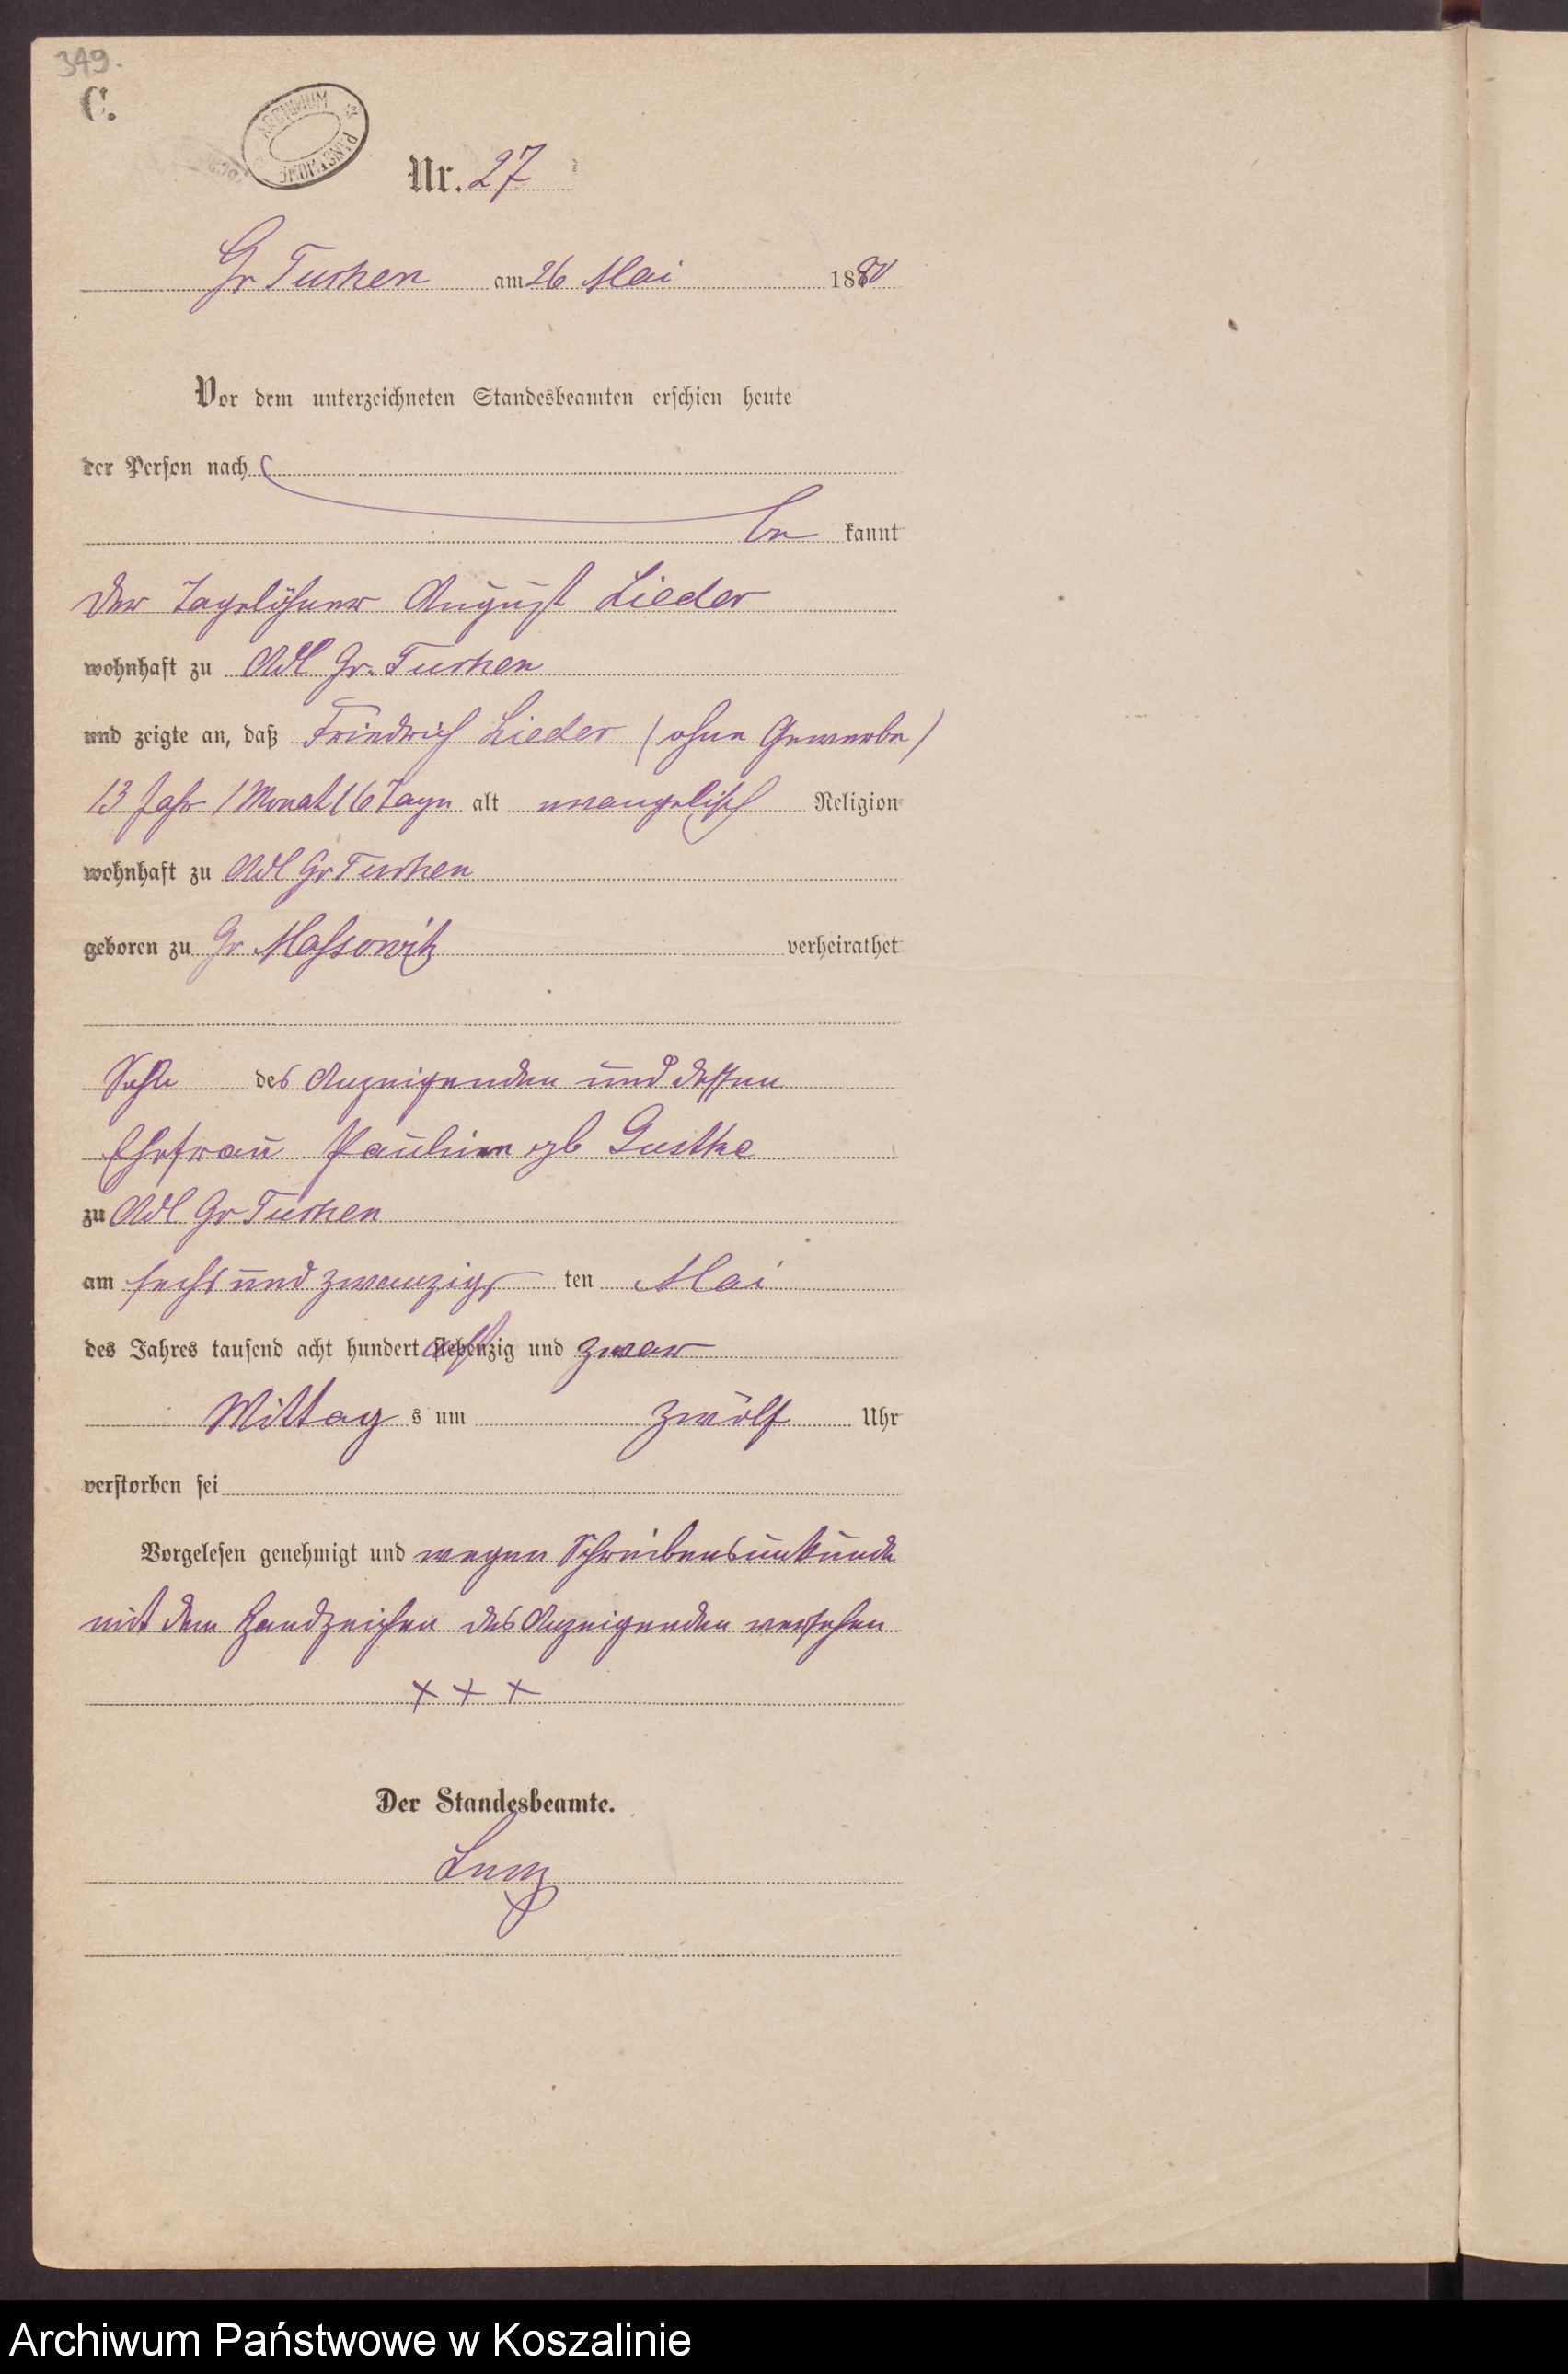 349.
C.
ARCHIWUM PAŃSTWOWE
Nr. 27
Gr Tuchen am 26 Mai 1880
Vor dem unterzeichneten Standesbeamten erschien heute
der Person nach
be kannt
der Tagelöhner August Lieder
wohnhaft zu Adl Gr. Tuchen
und zeigte an, daß Friedrich Lieder (ohne Gewerbe)
13 Jahr 1 Monat 16 Tage alt evangelisch Religion
wohnhaft zu Adl Gr Tuchen
geboren zu Gr Massowitz verheirathet
Sohn des Anzeigenden und dessen
Ehefrau Pauline gb Gustke
zu Adl Gr Tuchen
am sechs und zwanzigs ten Mai
des Jahres tausend acht hundert achtzig und zwar
Mittag s um zwölf Uhr
verstorben sei
Vorgelesen genehmigt und wegen Schreibensunkunde
mit dem Handzeichen des Anzeigenden versehen
+ + +
Der Standesbeamte.
Archiwum Państwowe w Koszalinie